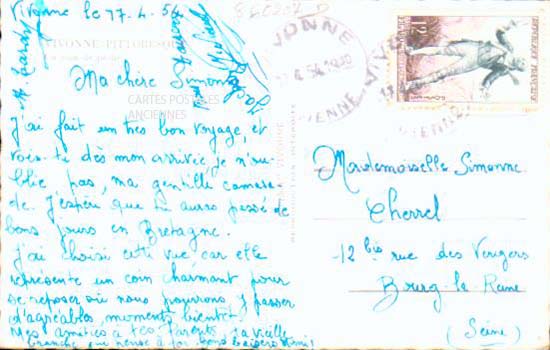 Vivonne le 17-4-54
VIVONNE PITTORESQUE
Ma chère Simone
CARTES POSTALES
ANCIENNES
J'ai fait un très bon voyage, et
vois-tu dès mon arrivée je n'ou
blie pas, ma gentille camara-
de. J'espère que tu auras passé de
bons jours en Bretagne.
J'ai choisi cette vue, car elle
représente un coin charmant pour
se reposer où nous pourrons y passer
d'agréables moments bientôt.
Mes amitiés à tes Parents. Ta vieille
branche qui pense à toi bons baisers
VIVONNE
17-4 54
VIENNE
VIVONNE
VIENNE
12F
REPUBLIQUE FRANÇAISE
Mademoiselle Simonne
Cherrel
12 bis rue des Vergers
Bourg-la-Reine
(Seine)